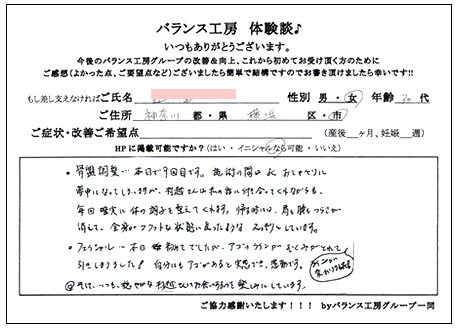 バランス工房 体験談♪
いつもありがとうございます。
今後のバランス工房グループの改善&向上、これから初めてお受け頂く方のために
ご感想(よかった点、ご要望点など)ございましたら簡単で結構ですのでお書き頂けましたら幸いです!!
もし差し支えなければご氏名 性別 男・女 年齢 30 代
ご住所 神奈川 都・県 横浜 区・市
ご症状・改善ご希望点 (産後 ヶ月、妊娠 週)
HPに掲載可能ですか?(はい・イニシャルなら可能・いいえ)
・骨盤調整… 本日で9回目です。施術の間は おしゃべりに
夢中になってしまいますが、 さんは私の話に付き合ってくれながらも、
毎回確実に体の調子を整えてくれます。帰る時には、肩も腰もつらさが
消して、全身がフラットな状態に戻ったような、スッキリしています。
・フェイシャル… 本日 初めてでしたが、アゴのラインが むくみがとれて
引きしまりました! 自分にもアゴがあると実感でき、感動です。
そして、いつも、穏やかな を楽しみにしています。
ご協力感謝いたします!!! byバランス工房グループ一同